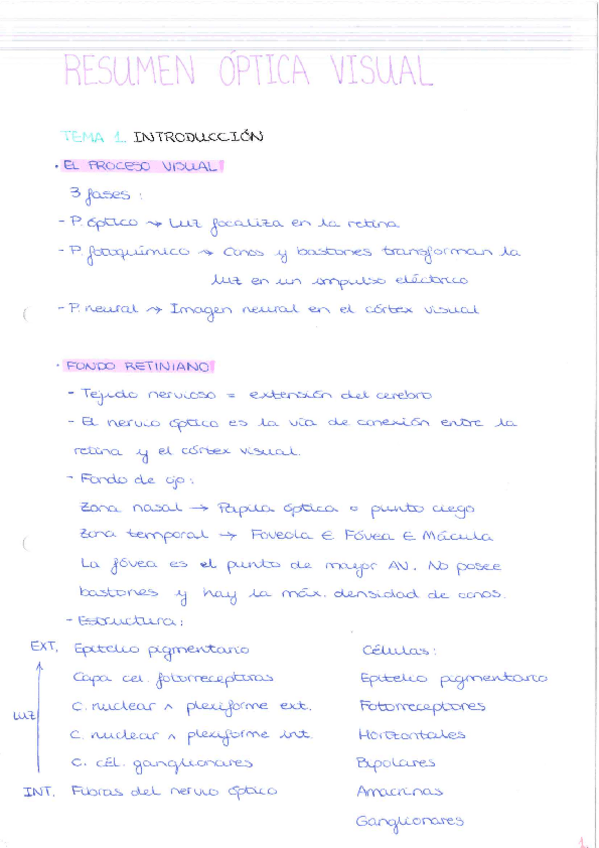 RESUMEN ÓPTICA VISUAL
TEMA 1. INTRODUCCIÓN
· EL PROCESO VISUAL
3 fases:
- P. óptico → Luz focaliza en la retina
- P. fotoquímico → Conos y bastones transforman la
luz en un impulso eléctrico
- P. neural → Imagen neural en el córtex visual
· FONDO RETINIANO
- Tejido nervioso = extensión del cerebro
- El nervio óptico es la vía de conexión entre la
retina y el córtex visual.
- Fondo de ojo:
Zona nasal → Papila óptica o punto ciego
Zona temporal → Foveola ∈ Fóvea ∈ Mácula
La fóvea es el punto de mayor AV. No posee
bastones y hay la máx. densidad de conos.
- Estructura:
EXT. Epitelio pigmentario
Capa cel. fotorreceptoras
C. nuclear ∧ plexiforme ext.
LUZ
C. nuclear ∧ plexiforme int.
C. cél. ganglionares
INT. Fibras del nervio óptico
Células:
Epitelio pigmentario
Fotorreceptores
Horizontales
Bipolares
Amacrinas
Ganglionares
1.